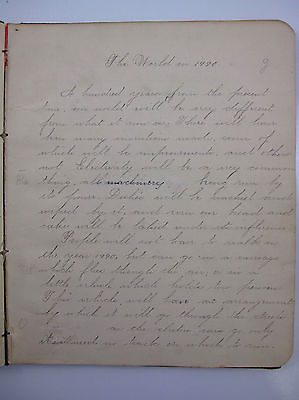 The World in 1990
A hundred years from the present
time, our world will be very different
from what it now is. There will have
been many inventions made, some of
which will be improvements, and others
not. Electricity will be a very common
thing, all machinery being run by
its power. Dishes will be washed and
wiped by it, and even our bread and
cakes will be baked under its influence.
People will not have to walk in
the year 1990, but can go in a carriage
which flies through the air, or in a
little article which holds two persons.
This article will have an arrangement
by which it will go through the streets
on the electric